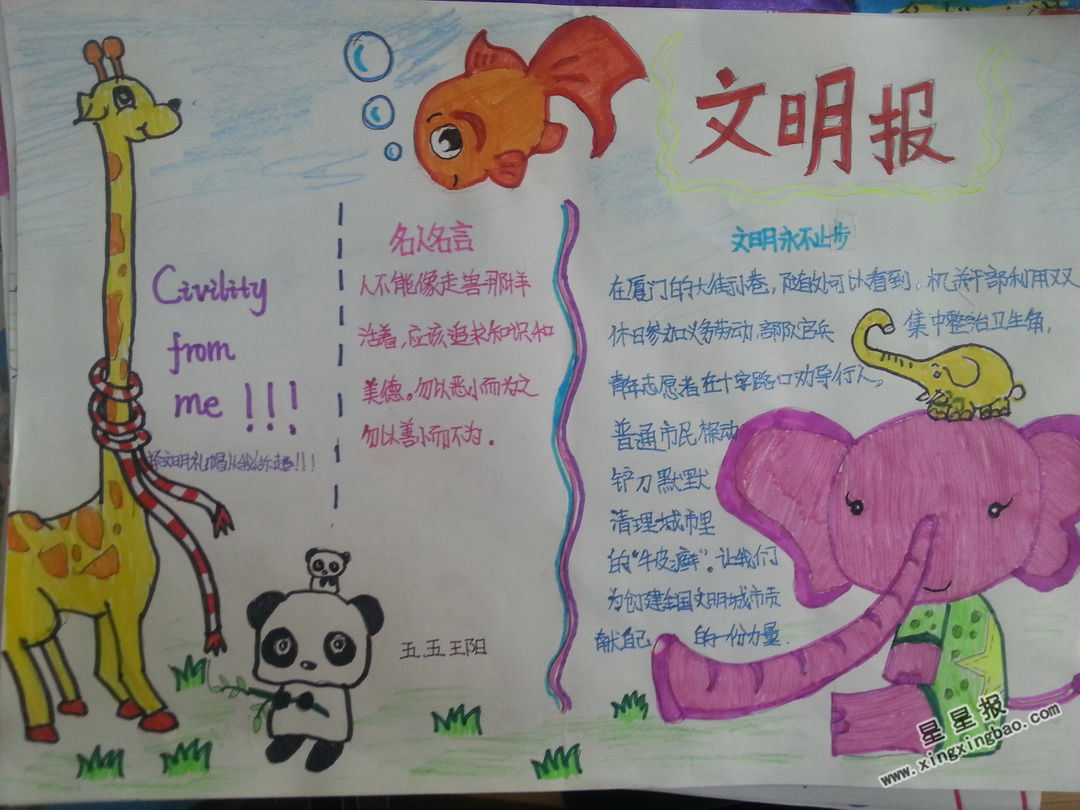 文明报
Civility
from
me!!!
名人名言
人不能像走兽那样
活着,应该追求知识和
美德。勿以恶小而为之
勿以善小而不为。
五.五 王阳
文明永不止步
在厦门的大街小巷,随处可以看到,机关干部利用双
休日参加义务劳动,部队官兵集中整治卫生角,
青年志愿者在十字路口劝导行人。
普通市民 动
铲刀默默
清理城市里
的“牛皮癣”。让我们
为创建全国文明城市贡
献自己的一份力量.
星星报
www.xingxingbao.com